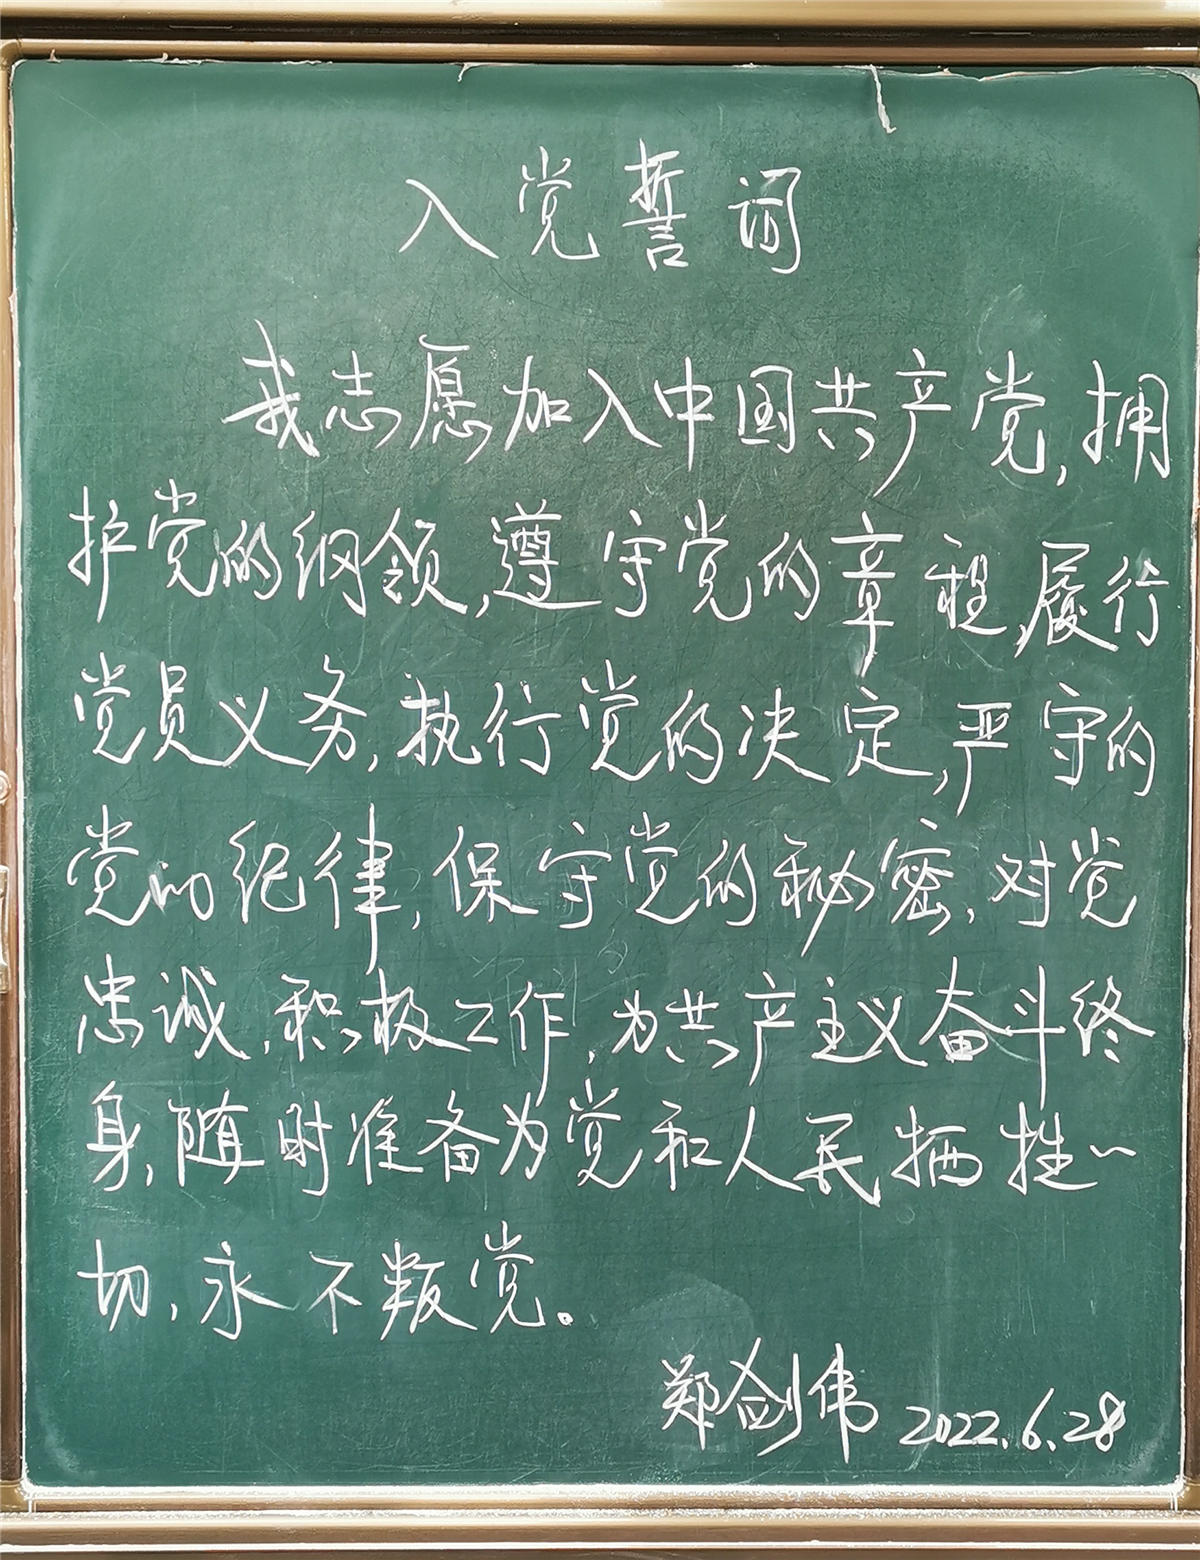 入党誓词
我志愿加入中国共产党,拥
护党的纲领,遵守党的章程,履行
党员义务,执行党的决定,严守的
党的纪律,保守党的秘密,对党
忠诚,积极工作,为共产主义奋斗终
身,随时准备为党和人民牺牲一
切,永不叛党。
郑剑伟 2022.6.28